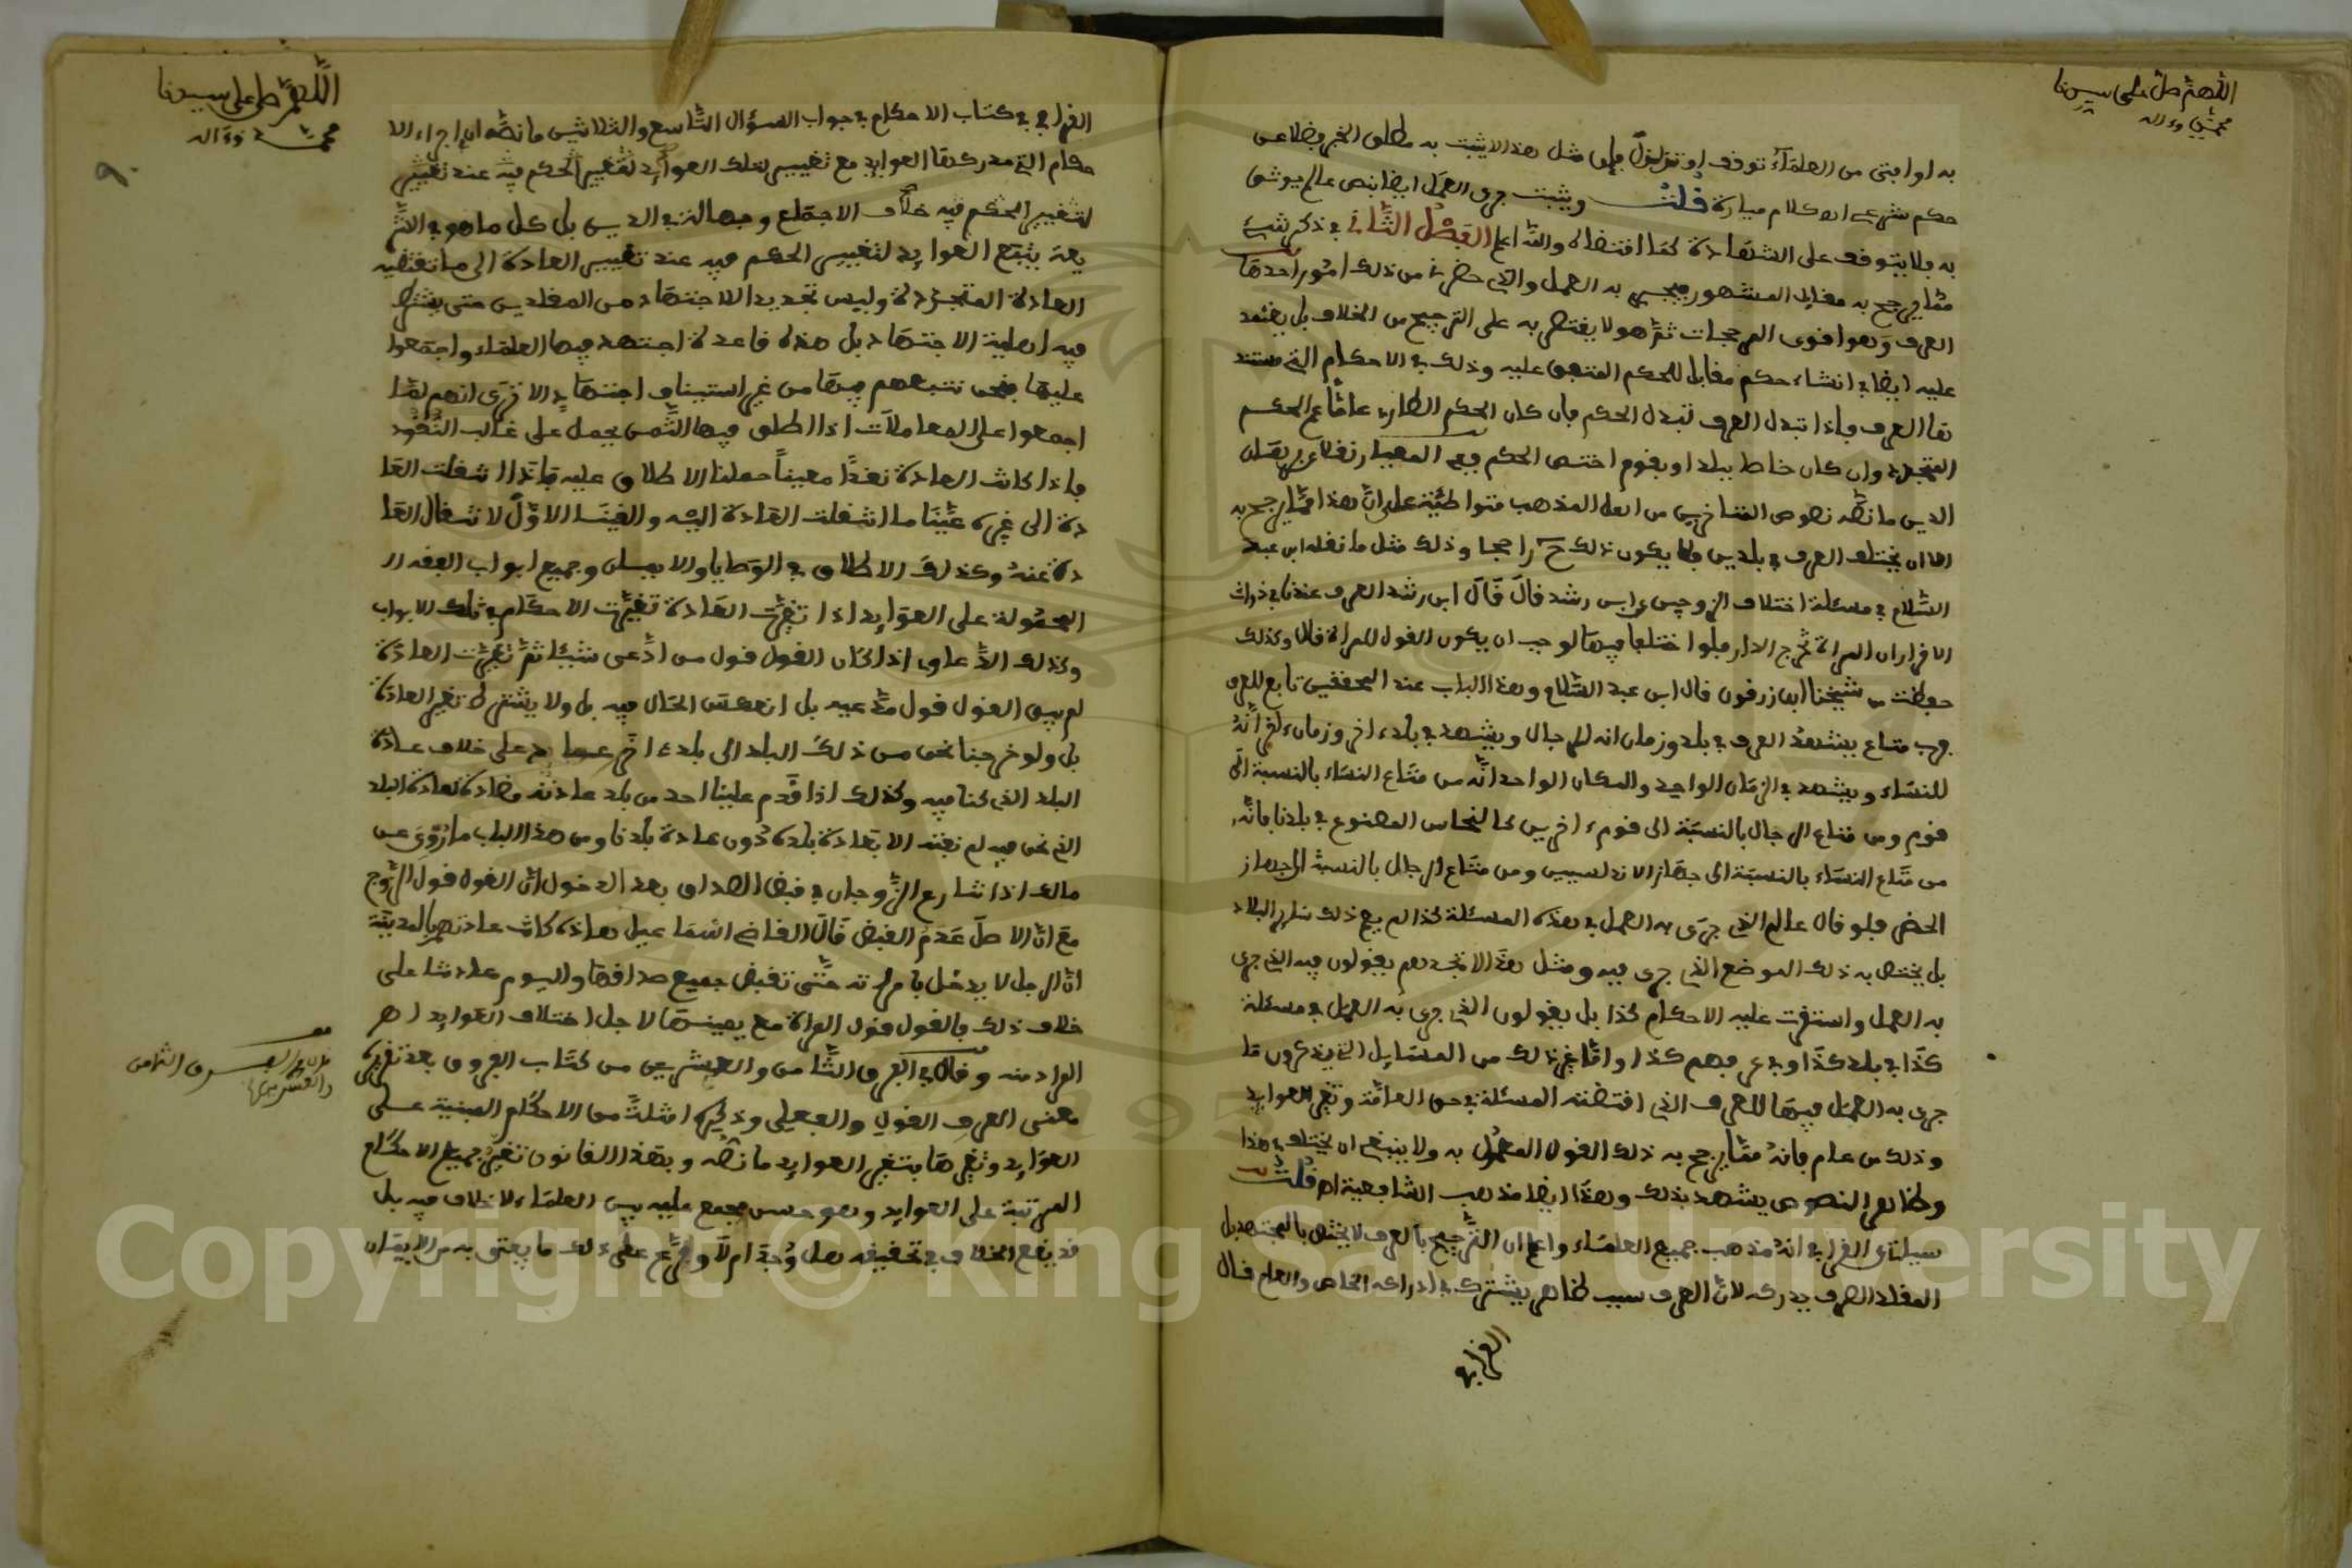 اللهم صل على سيدنا
محمد وءاله
به او افتى من العلماء توقف او تزلزل فإن مثل هذا لا يثبت به مطلق الخبر فضلا عن
حكم شرعي اهـ كلام ميارة قلت ويثبت جرى العمل ايضا بنص عالم يوثق
به ولا يتوقف على الشهادة كما اقتضاه والله اعلم الفصل الثاني في ذكر شيء
مما يرجح به مقابل المشهور فيجري به العمل والذي حضرني من ذلك امور احدها
العرف وهو اقوى المرجحات ثم هو لا يقتصر به على الترجيح من الخلاف بل يعتمد
عليه ايضا في انشاء حكم مقابل للحكم المتفق عليه وذلك في الاحكام التي مستند
ها العرف فإذا تبدل العرف تبدل الحكم فإن كان الحكم الطارئ عاما عم الحكم
المتجدد وان كان خاصا ببلد او بقوم اختص الحكم ففي المعيار نقلا عن برهان
الدين ما نصه نصوص المتأخرين من اهل المذهب متواطئة على ان هذا مما يرجح به
الا ان يختلف العرف في بلدين فلا يكون ذلك ح راجحا وذلك مثل ما نقله ابن عبد
السلام في مسئلة اختلاف الزوجين عن ابن رشد قال قال ابن رشد العرف عندنا في ذوات
الاقرار ان المراة تخرج الدار فلو اختلفا فيها لوجب ان يكون القول للمراة قال وكذلك
حفظت من شيخنا ابن زرقون قال ابن عبد السلام وهذا الباب عند المحققين تابع للعرف
فرب متاع يشهد العرف في بلد وزمان انه للرجال ويشهد في بلدء اخر وزمانء اخر انه
للنساء ويشهد في الزمان الواحد والمكان الواحد انه من متاع النساء بالنسبة الى
قوم ومن متاع الرجال بالنسبة الى قومء اخرين كالنحاس المصنوع في بلدنا فانه
من متاع النساء بالنسبة الى جهاز الاندلسيين ومن متاع الرجال بالنسبة الى جهاز
الحضر فلو قال عالم الذي جرى به العمل في هذه المسئلة كذا لم يعم ذلك سائر البلاد
بل يختص به ذلك الموضع الذي جرى فيه ومثل هذا لا تجدهم يقولون فيه الذي جرى
به العمل واستقرت عليه الاحكام كذا بل يقولون الذي جرى به العمل في مسئلة
كذا في بلد كذا وفي عرفهم كذا واما غير ذلك من المسايل التي يذكرون ما
جرى به العمل فيها للعرف الذي اقتضته المسئلة في حق العامة وتغير العوايد
وذلك من عام فانه مما يرجح به ذلك القول المعمول به ولا ينبغي ان يختلف في هذا
وظاهر النصوص يشهد بذلك وهذا ايضا مذهب الشافعية اهـ قلت
سيأتي للقرافي انه مذهب جميع العلماء واعلم ان الترجيح بالعرف لا يختص بالمجتهد بل
المقلد الصرف يدركه لان العرف سبب ظاهر يشترك في ادراكه الخاص والعام قال
القرافي
اللهم صل على سيدنا
محمد وءاله
القرافي في كتاب الاحكام في جواب السؤال التاسع والثلاثين ما نصه ان اجراء الا
حكام التي مدركها العوايد مع تغيير تلك العوايد تغيير الحكم فيه عند تغيير
لتغيير الحكم فيه خلاف الاجماع وجهالة في الدين بل كل ما هو في الشر
يعة يتبع العوايد لتغيير الحكم فيه عند تغيير العادة الى ما تقتضيه
العادة المتجددة وليس تجديد الاجتهاد من المقلدين حتى يشترط
فيه اهلية الاجتهاد بل هذه قاعدة اجتهد فيها العلماء واجمعوا
عليها فنحن نتبعهم فيها من غير استيناف اجتهاد الا ترى انهم لما
اجمعوا على المعاملات اذا اطلق فيها الثمن يحمل على غالب النقود
فإذا كانت العادة نقدا معينا حملنا الاطلاق عليه فإذا انتقلت العا
دة الى غيره عينا ما انتقلت العادة اليه والغينا الاول لانتقال العا
دة عنه وكذلك الاطلاق في الوصايا والايمان وجميع ابواب الفقه الـ
المحمولة على العوايد اذا تغيرت العادة تغيرت الاحكام في تلك الابواب
وكذلك الدعاوي اذا كان القول قول من ادعى شيئا ثم تغيرت العادة
لم يبق القول قول مدعيه بل انعكس الحال فيه بل ولا يشترط تغير العادة
بل ولو خرجنا نحن من ذلك البلد الى بلدء اخر عوايدهم على خلاف عادة
البلد الذي كنا فيه وكذلك اذا قدم علينا احد من بلد عادته مضادة لعادة البلد
الذي نحن فيه لم نفته الا بعادة بلده دون عادة بلدنا ومن هذا الباب ما روي عن
مالك اذا تنازع الزوجان في قبض الصداق بعد الدخول ان القول قول الزوج
مع ان الاصل عدم القبض قال القاضي اسماعيل هذه كانت عادتهم بالمدينة
ان الرجل لا يدخل بامراته حتى تقبض جميع صداقها واليوم عادتنا على
خلاف ذلك فالقول قول المراة مع يمينها لاجل اختلاف العوايد اهـ
المراد منه وقال في الفرق الثامن والعشرين من كتاب الفروق بعد تقريره
معنى العرف القولي والفعلي وذكره امثلة من الاحكام المبنية على
العوايد وتغيرها بتغير العوايد ما نصه وبهذا القانون تغير جميع الاحكام
المرتبة على العوايد وهو حسن مجمع عليه بين العلماء لا خلاف فيه بل
قد يقع الخلاف في تحقيقه هل وجد ام لا وفرع على ذلك ما يفتى به من الايمان
الفرق الثامن
والعشرين